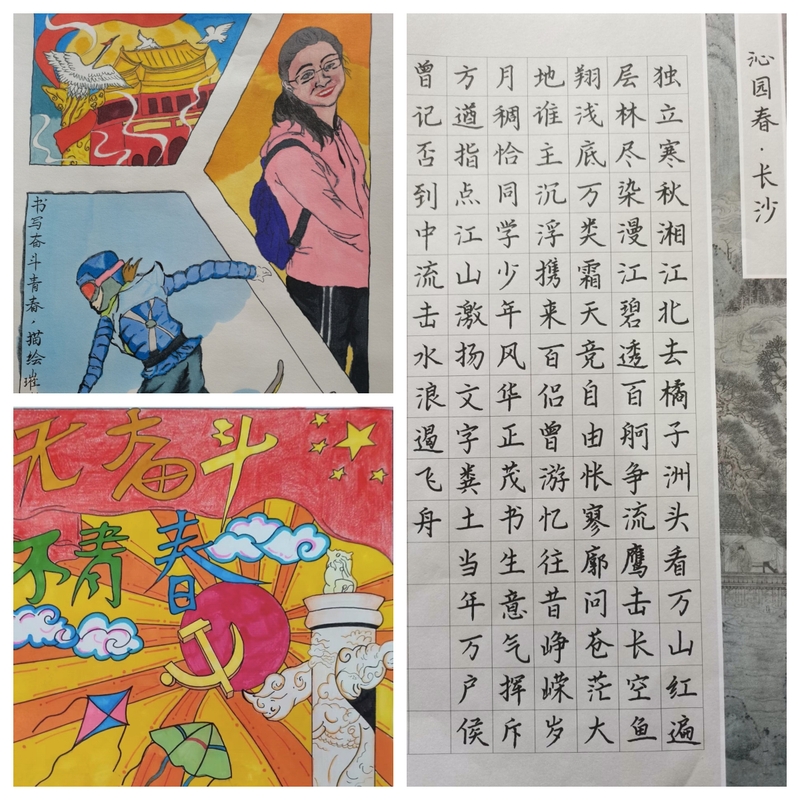 书写奋斗青春·描绘璀
无奋斗
不青春
沁园春·长沙
独立寒秋湘江北去橘子洲头看万山红遍
层林尽染漫江碧透百舸争流鹰击长空鱼
翔浅底万类霜天竞自由怅寥廓问苍茫大
地谁主沉浮携来百侣曾游忆往昔峥嵘岁
月稠恰同学少年风华正茂书生意气挥斥
方遒指点江山激扬文字粪土当年万户侯
曾记否到中流击水浪遏飞舟